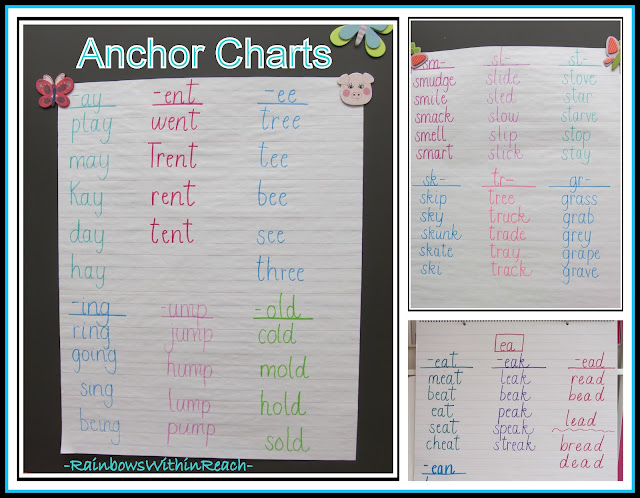 Anchor Charts
-ay -ent -ee
play went tree
may Trent tee
Kay rent bee
day tent see
hay three
-ing -ump -old
ring jump cold
going hump mold
sing lump hold
being pump sold
-RainbowsWithinReach-
sm- sl- st-
smudge slide stove
smile sled star
smack slow starve
smell slip stop
smart slick stay
sk- tr- gr-
skip tree grass
sky truck grab
skunk trade grey
skate tray grape
ski track grave
ea
-eat -eak -ead
meat leak read
beat beak bead
eat peak
seat speak lead
cheat streak bread
dead
-ean